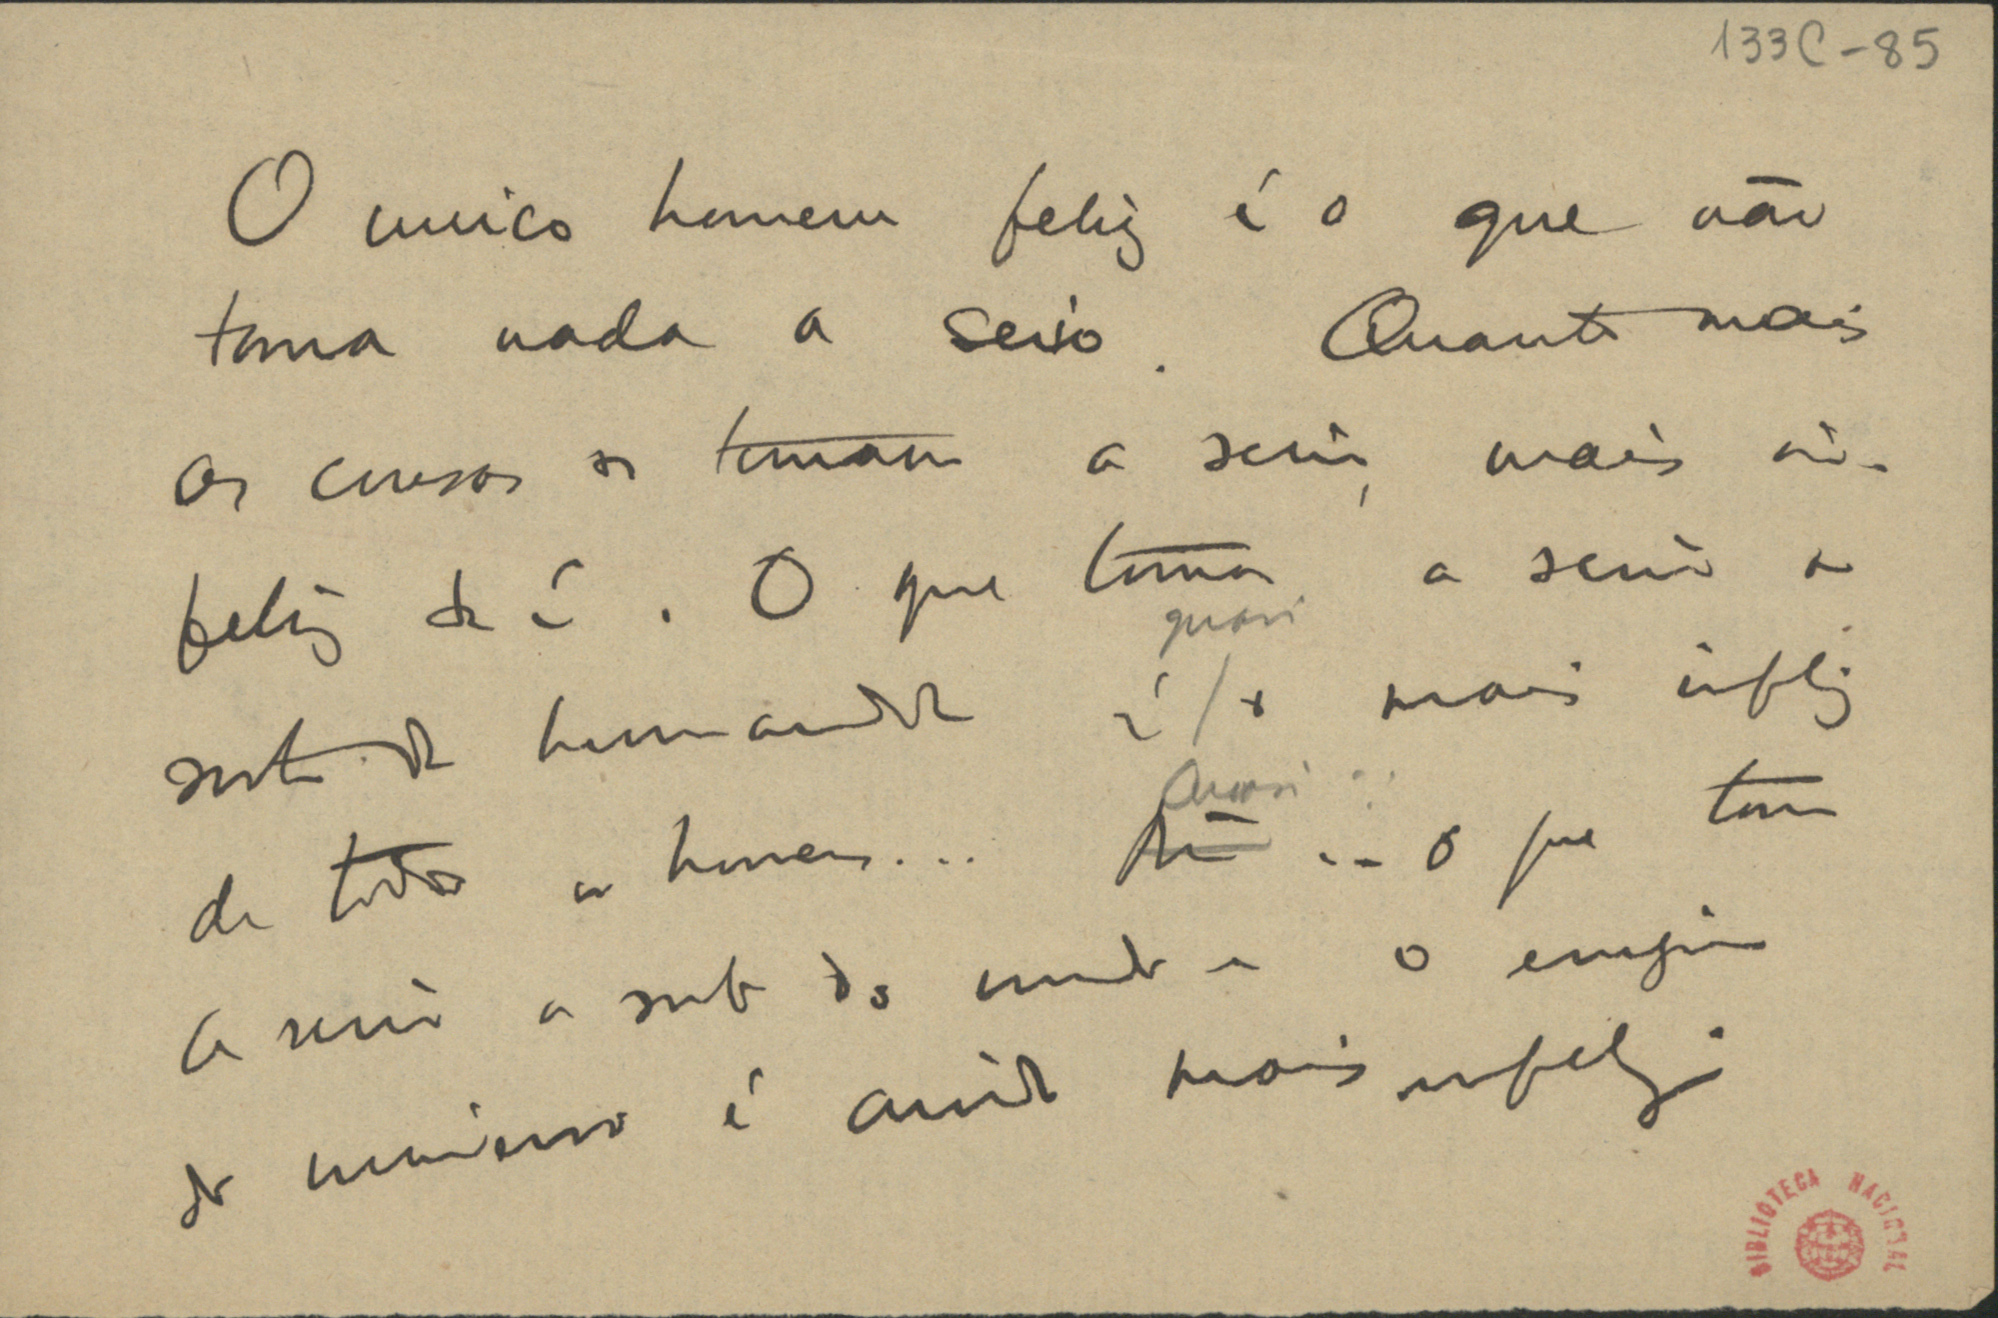 133C-85
O unico homem feliz é o que não
toma nada a serio. Quanto mais
as cousas se tomam a serio, mais in-
feliz se é. O que toma a serio a
quasi
sorte da humanidade é/o mais infeliz
de todos os homens...
Quasi...
Não... O que toma
a serio a sorte do mundo e o
do universo é ainda mais infeliz.
BIBLIOTECA NACIONAL